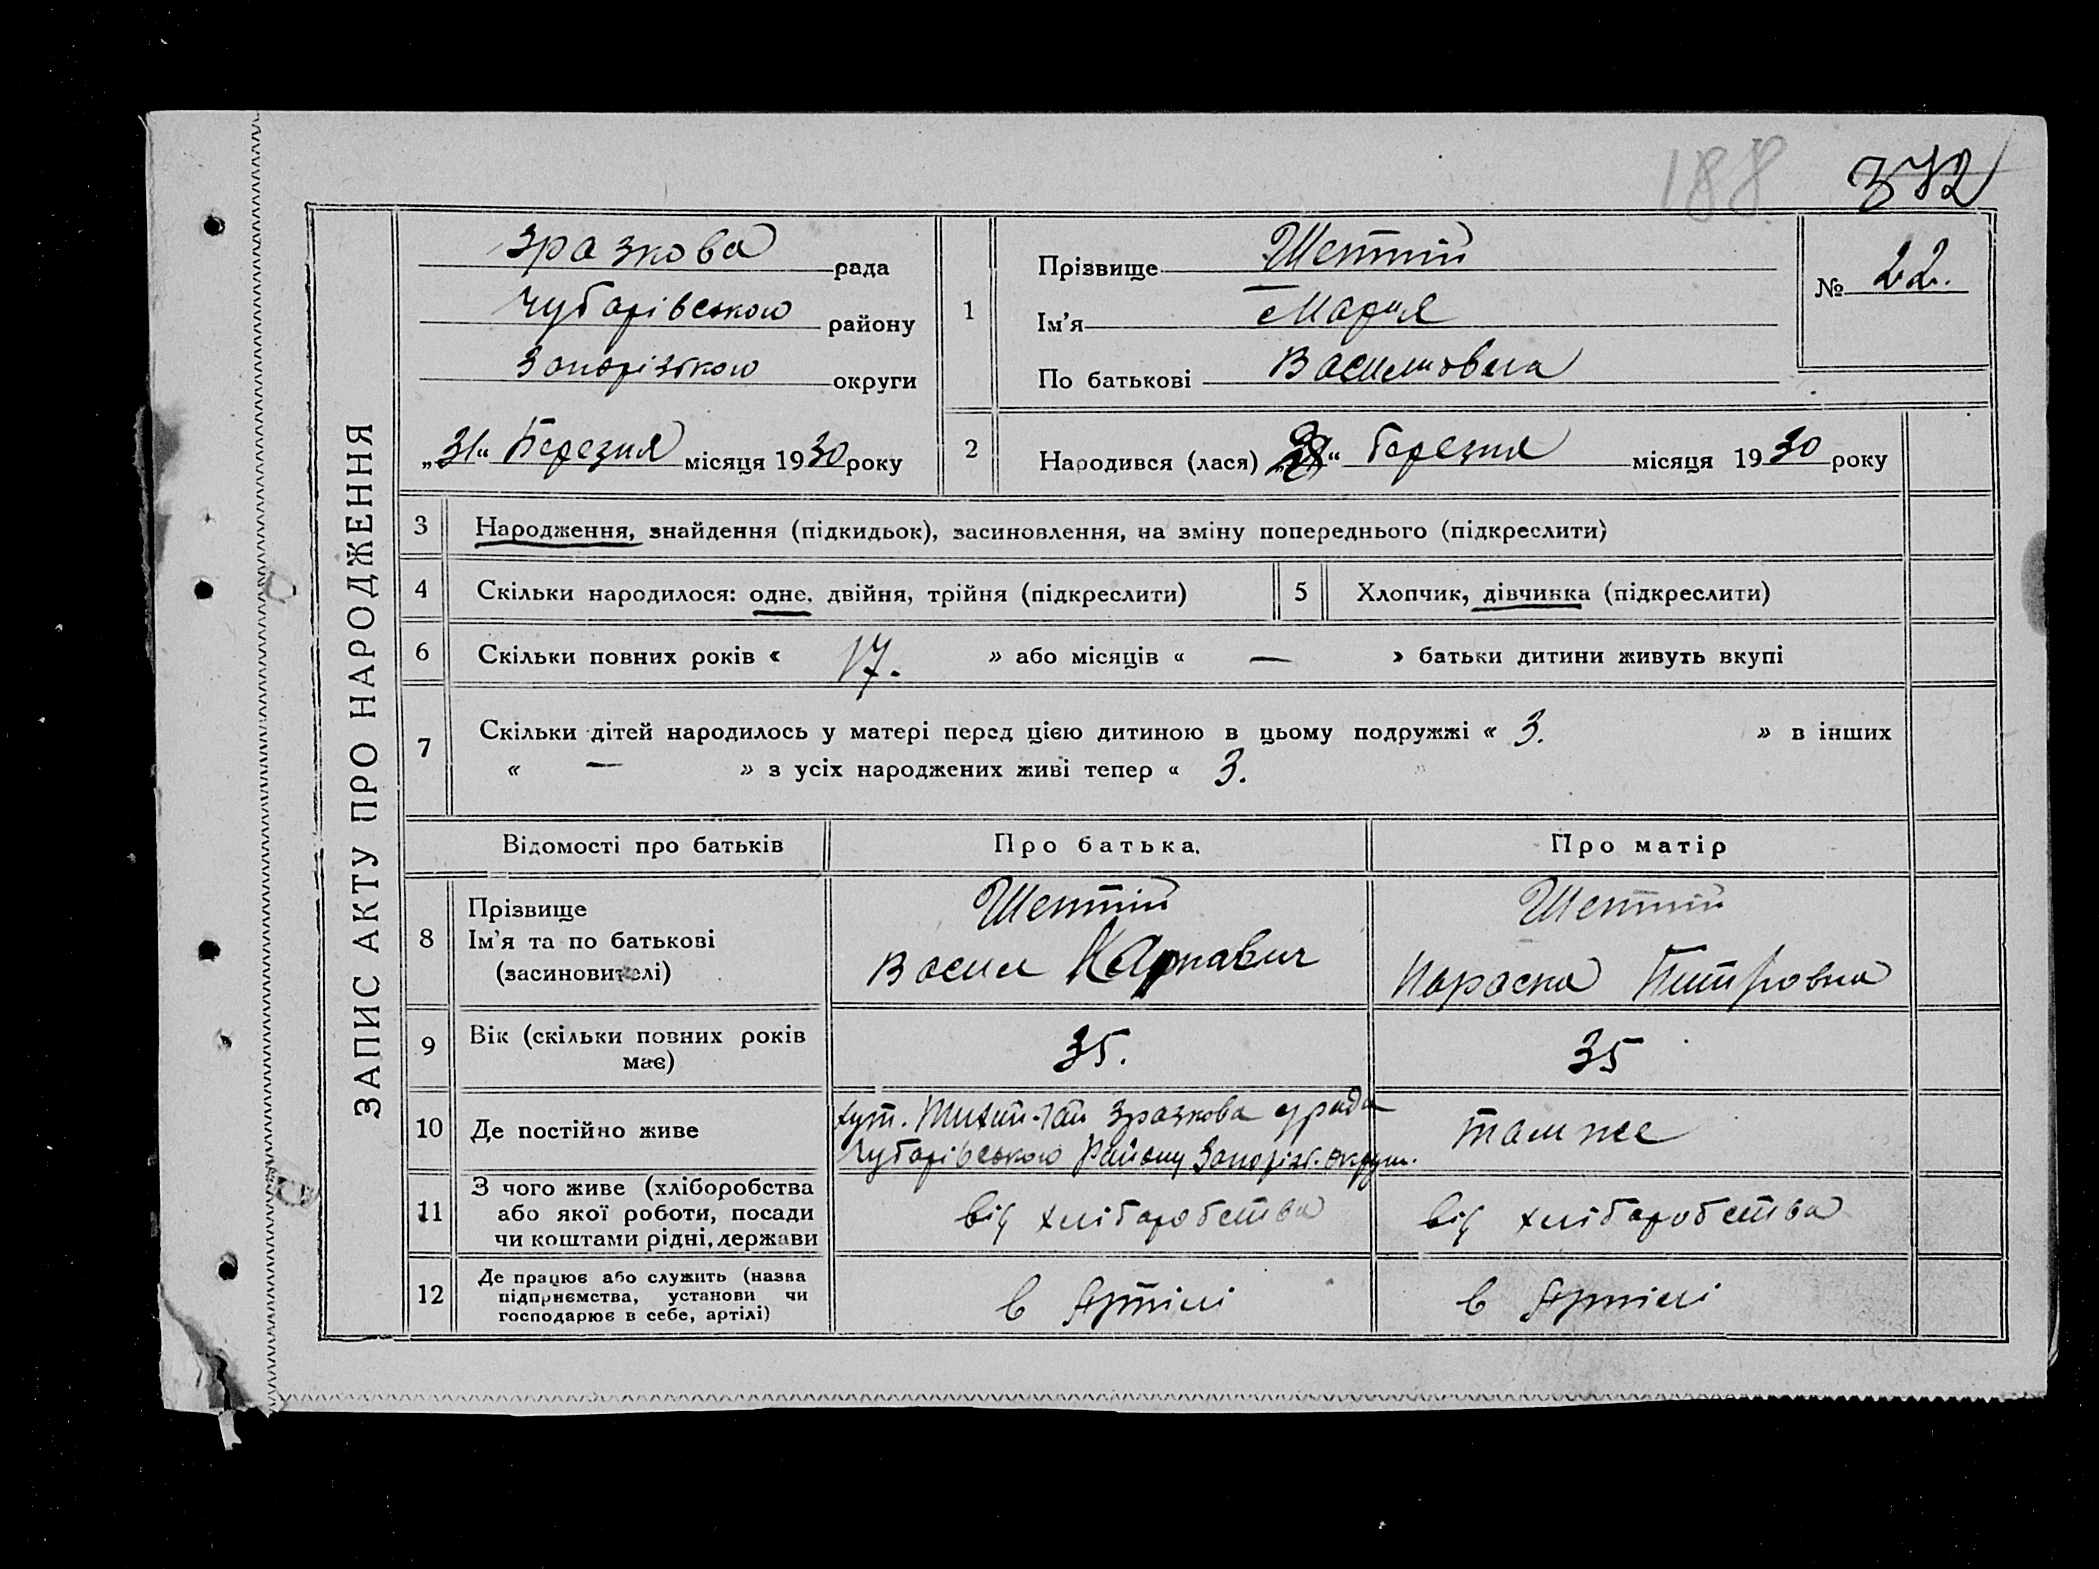 188 372
ЗАПИС АКТУ ПРО НАРОДЖЕННЯ
Зразкова рада
Чубарівського району
Запорізького округи
„31“ Березня місяця 1930 року
1
Прізвище Шептій
Ім’я Мария
По батькові Василиовна
№ 22.
2
Народився (лася) березня місяця 1930 року
3 Народження, знайдення (підкидьок), засиновлення, на зміну попереднього (підкреслити)
4 Скільки народилося: одне, двійня, трійня (підкреслити)
5 Хлопчик, дівчинка (підкреслити)
6 Скільки повних років « 17. » або місяців « — » батьки дитини живуть вкупі
7 Скільки дітей народилось у матері перед цією дитиною в цьому подружжі « 3. » в інших
« — » з усіх народжених живі тепер « 3.
Відомості про батьків Про батька. Про матір
8 Прізвище
Ім’я та по батькові
(засиновителі)
Шептій
Васил Карпавич
Шептій
Параска Питровна
9 Вік (скільки повних років
має)
35.
35
10 Де постійно живе
хут. Тихий-Гай Зразкова с/рада
Чубарівського Району Запоріз. округи.
там же
11 З чого живе (хліборобства
або якої роботи, посади
чи коштами рідні, держави
від хліборобства
від хліборобства
12 Де працює або служить (назва
підприємства, установи чи
господарює в себе, артілі)
в Артілі
в Артілі